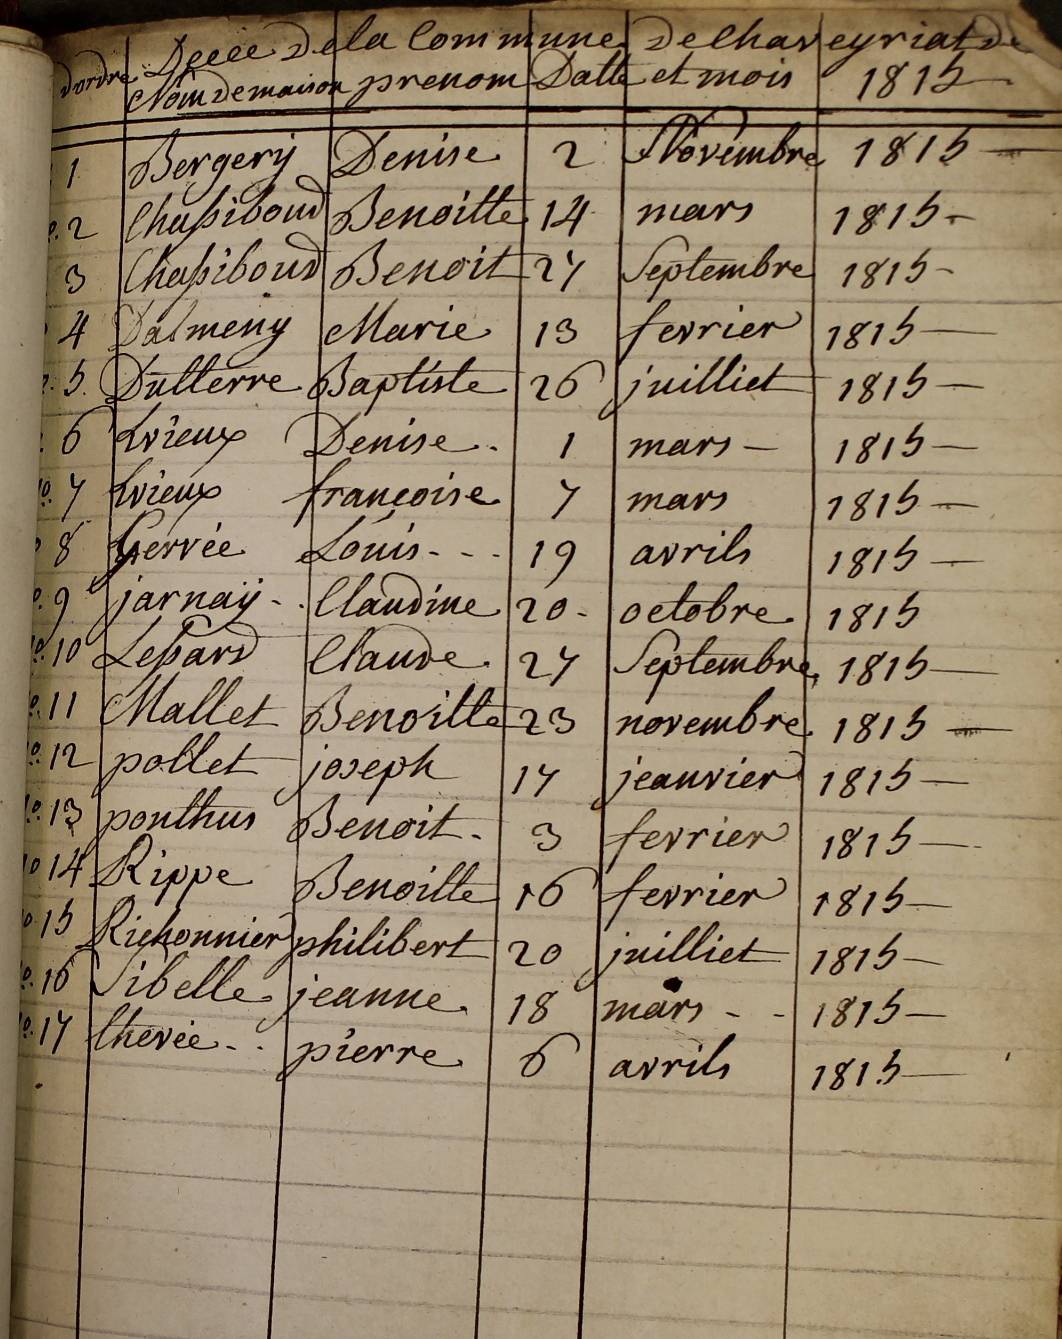 Décéé De la Commune De Chaveyriat De
d'ordre Nom De maison prenom Datte et mois 1815
1 Bergery Denise 2 Novembre 1815
2 Chaßiboud Benoitte 14 mars 1815
3 Chaßiboud Benoit 27 Septembre 1815
4 Dalmeny Marie 13 fevrier 1815
5 Dutterre Baptiste 26 juilliet 1815
6 Denise 1 mars 1815
no. 7 françoise 7 mars 1815
8 Gervée Louis 19 avrils 1815
9 jarnaÿ Claudine 20 octobre 1815
no. 10 Leßard Claude 27 Septembre 1815
no. 11 Mallet Benoitte 23 novembre 1815
no. 12 pollet joseph 17 jeanvier 1815
no. 13 ponthus Benoit 3 fevrier 1815
no 14 Rippe Benoitte 16 fevrier 1815
no 15 Richonnier philibert 20 juilliet 1815
no. 16 Sibelle jeanne 18 mars 1815
no. 17 thevée pierre 6 avrils 1815